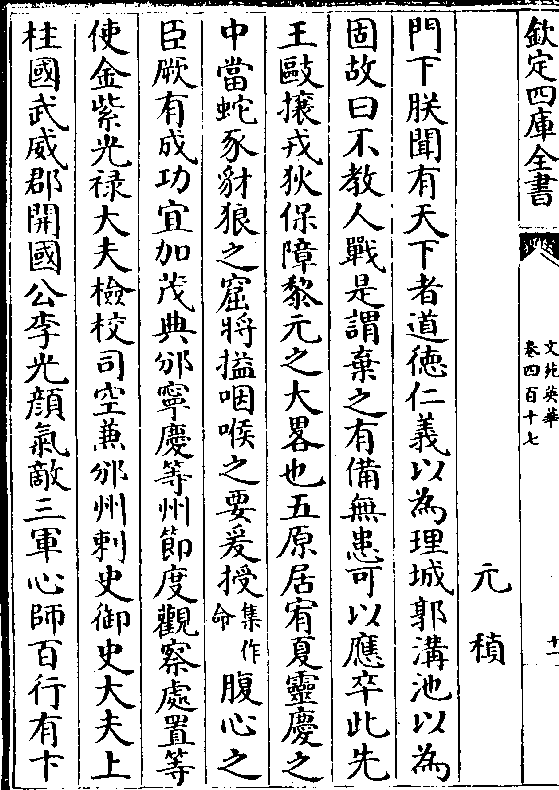 欽定四庫全書
文苑英華
卷四百十七
十一
元稹
門下朕聞有天下者道徳仁義以為理城郭溝池以為
固故曰不教人戰是謂棄之有備無患可以應卒此先
王敺攘戎狄保障黎元之大畧也五原居宥夏靈慶之
中當蛇豕豺狼之窟將搤咽喉之要爰授集作命腹心之
臣厥有成功宜加茂典邠寧慶等州節度觀察處置等
使金紫光禄大夫檢校司空兼邠州刺史御史大夫上
柱國武威郡開國公李光顔氣敵三軍心師百行有卞